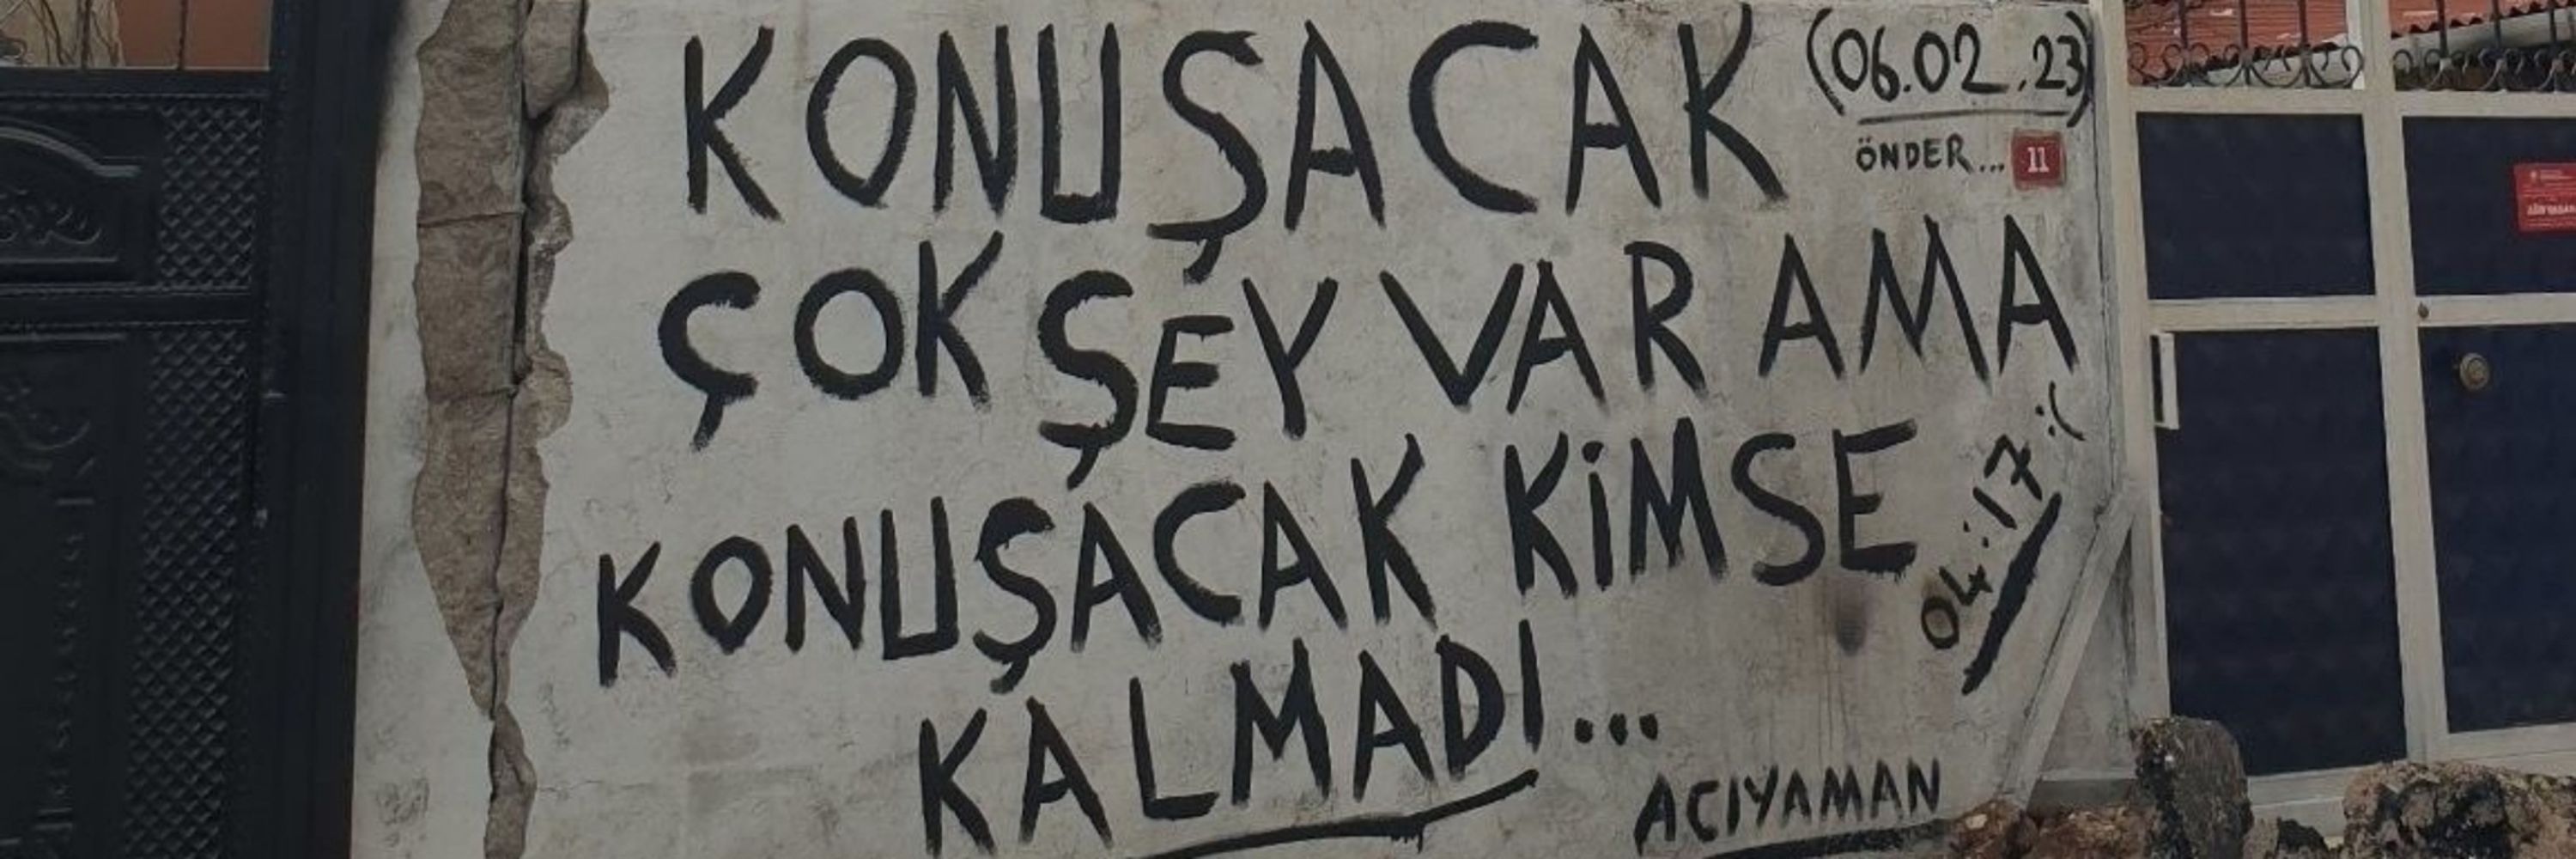 KONUŞACAK
(06.02.23)
ÖNDER... 11
ÇOK ŞEY VAR AMA
KONUŞACAK KİMSE
04:17 :(
KALMADI...
ACIYAMAN